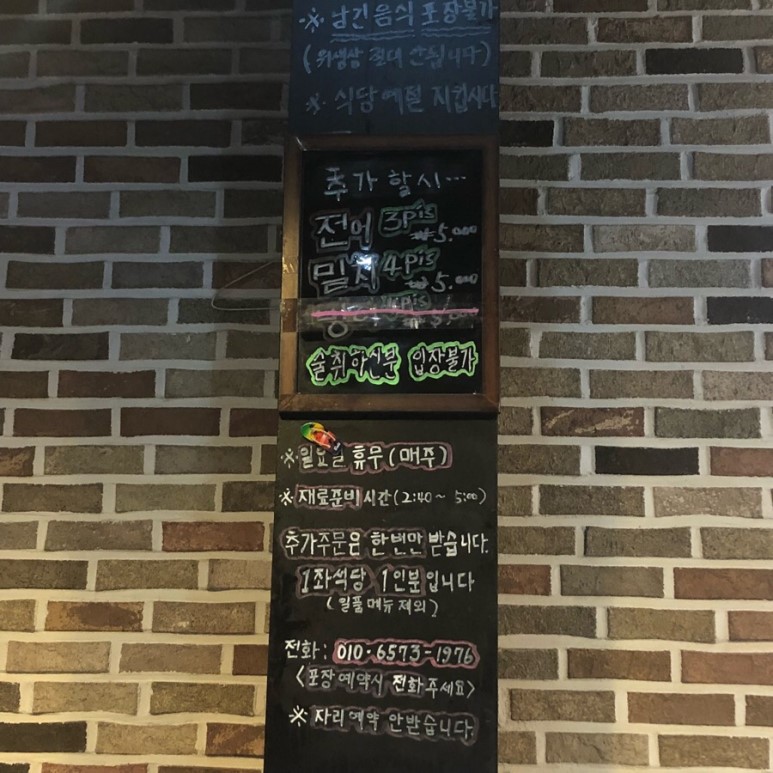 ※ 남긴음식 포장불가
(위생상 절대 안됩니다)
※ 식당예절 지킵시다
추가 할시...
전어 3pis ₩5.000
밀치 4pis ₩5.000
술취하신분 입장불가
※일요일 휴무(매주)
※ 재료준비시간(2:40~ 5:00)
추가주문은 한번만 받습니다.
1좌석당 1인분입니다
(일품메뉴 제외)
전화: 010-6573-1976
<포장예약시 전화주세요>
※ 자리예약 안받습니다.